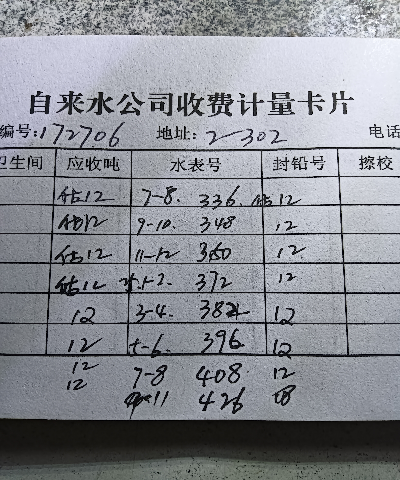 自来水公司收费计量卡片
编号:172706 地址:2-302 电话
卫生间 应收吨 水表号 封铅号 擦校
估12 7-8. 336 估12
估12 9-10. 348 12
估12 11-12 360 12
估12 1-2 372 12
12 3-4. 384 12
12 5-6. 396 12
12 7-8 408 12
12 11 426 18